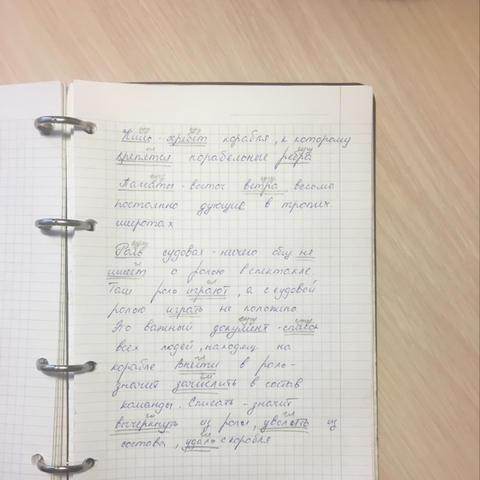 Киль - хребет корабля, к которому
крепятся корабельные ребра
Пассаты - восточ ветра весьма
постоянно дующие в тропич.
широтах
Роль судовая - ничего общ не
имеет с ролью в спектакле.
Там роль играют, а с судовой
ролью играть не положено
Это важный документ - список
всех людей, находящ. на
корабле Внести в роль -
значит зачислить в состав
команды. Списать - значит
вычеркнуть из роли, уволить из
состава, удаль с корабля